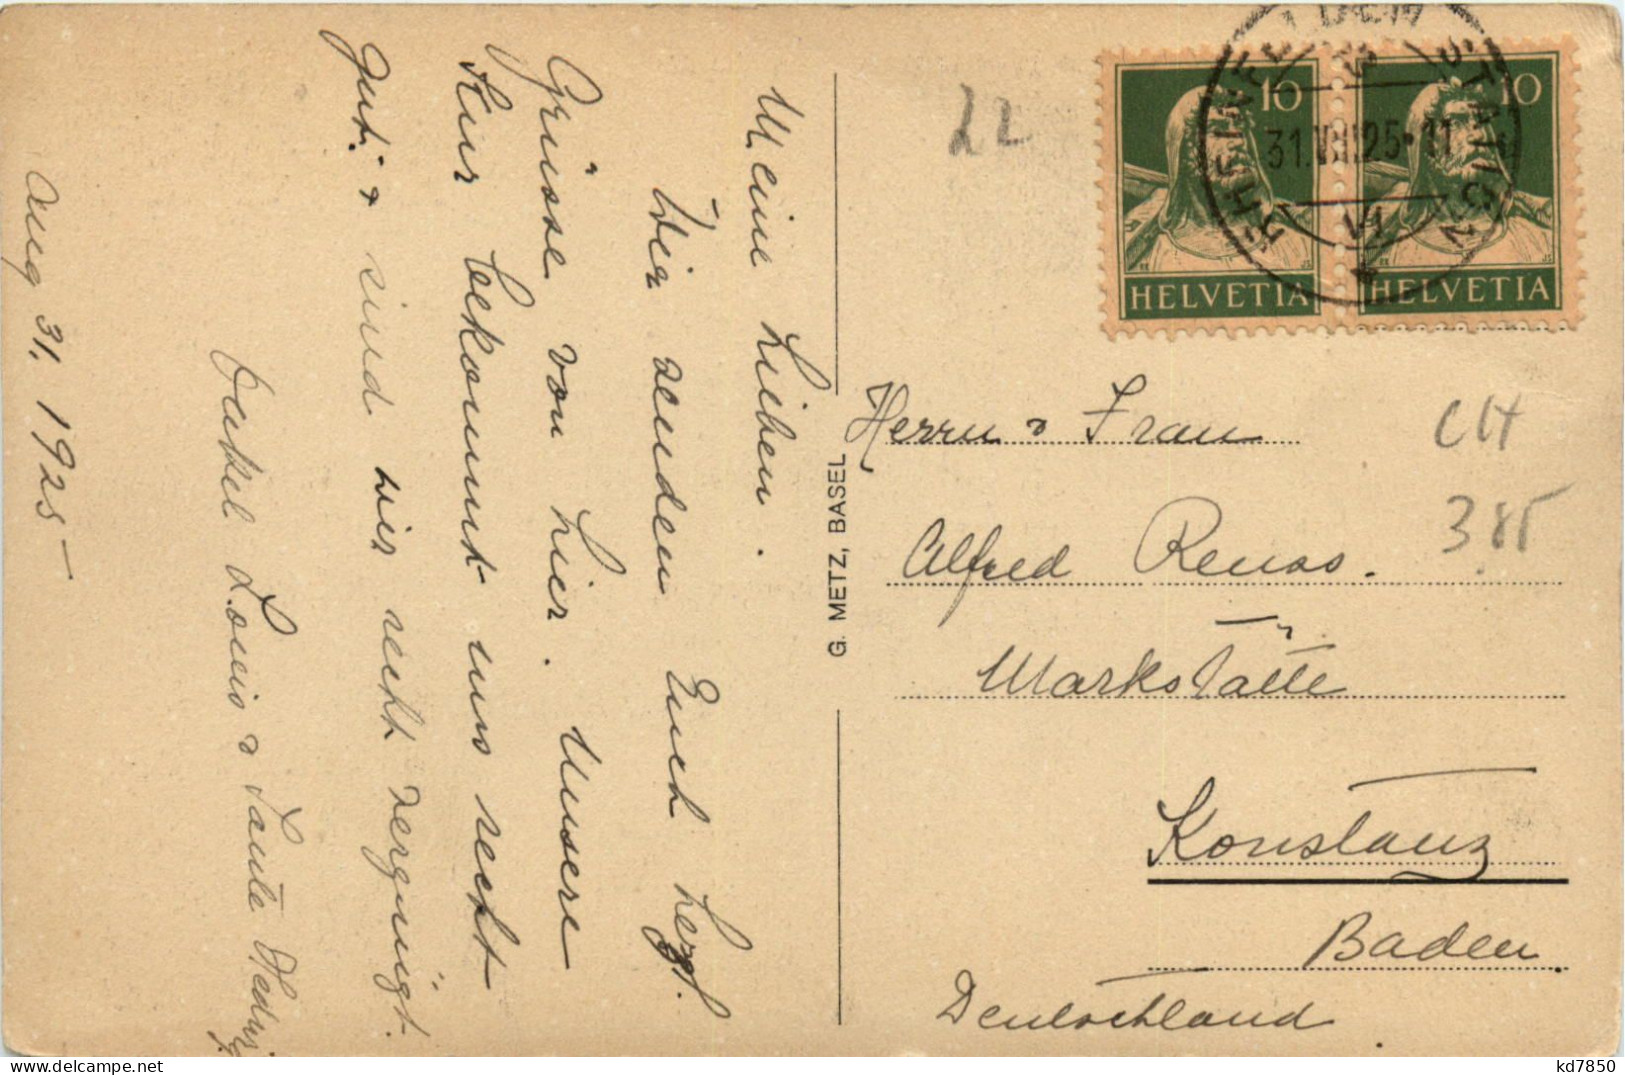 Meine Lieben.
Wir senden Euch herzl.
Grüsse von hier. Unsere
Kur bekommt uns recht
gut. & sind wir recht vergnügt.
Onkel Louis & Tante Hedwig
Aug 31. 1925 –
G. METZ, BASEL
22
10
HELVETIA
10
HELVETIA
RHEINFELDEN STATION
31.VIII.25-11
VI
Herrn & Frau
Alfred
Markstätte
Konstanz
Baden.
Deutschland
CH
385
kd7850